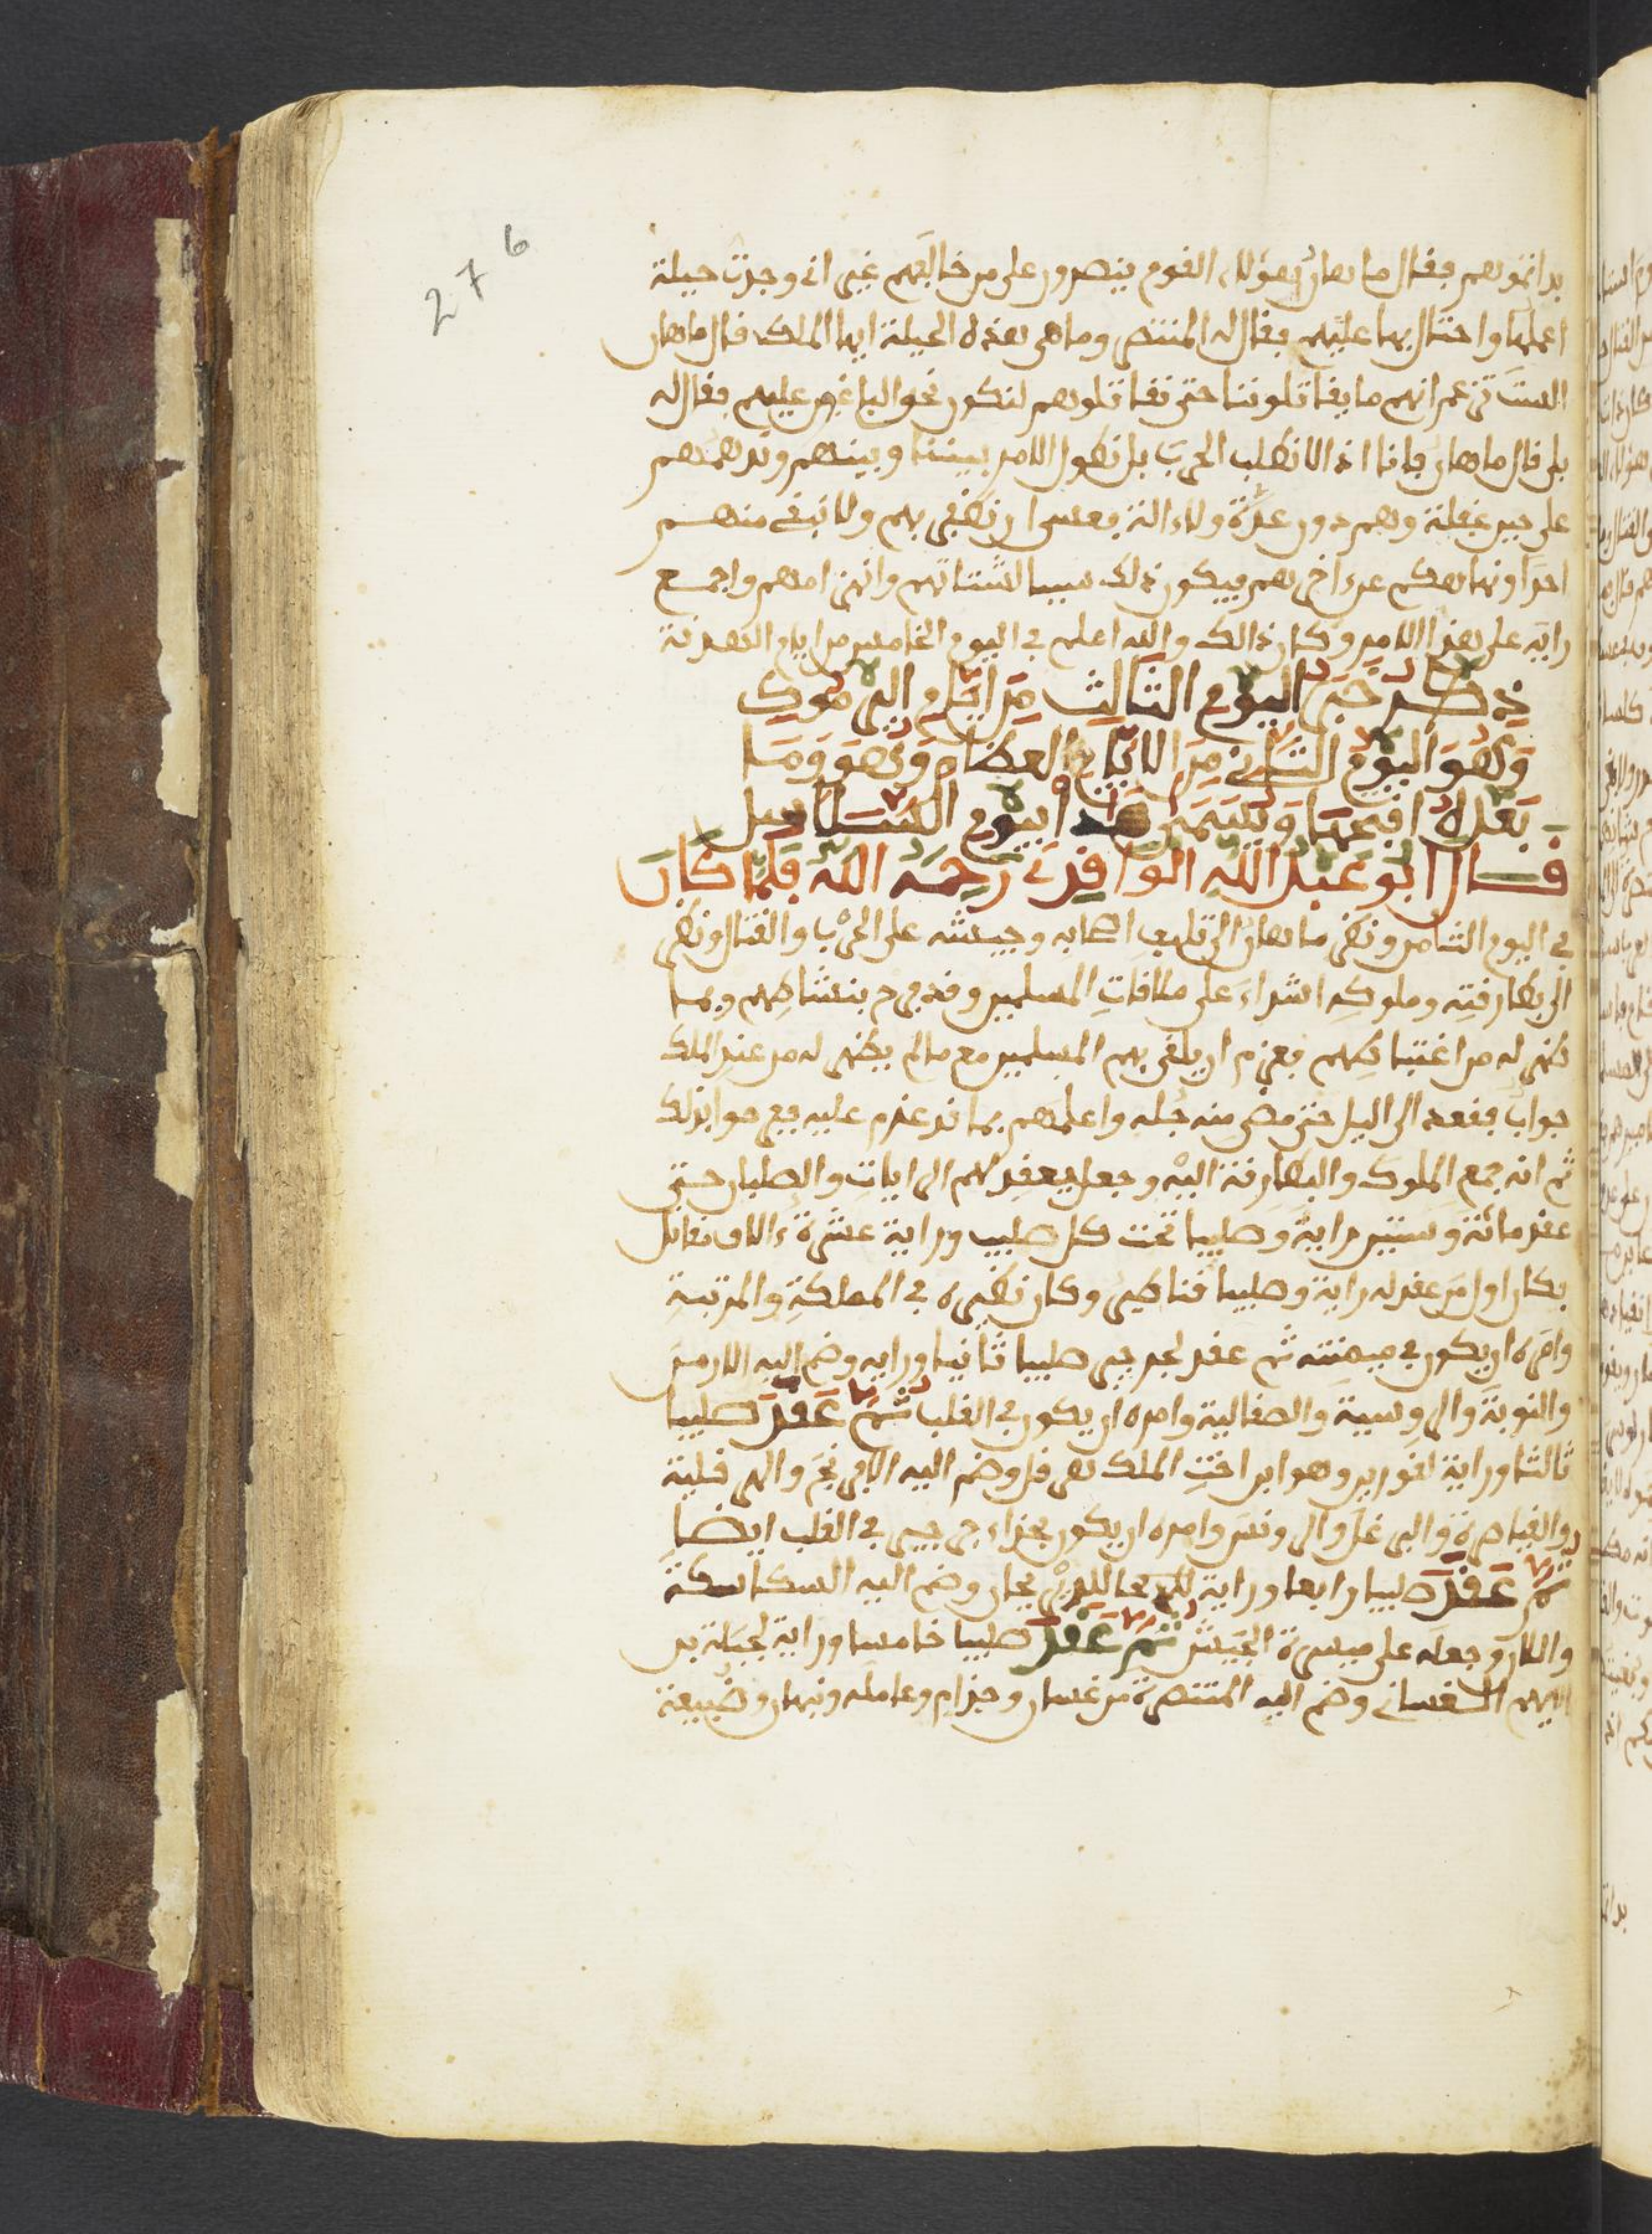 276
بداتموهم فقال ماهان هؤلاء القوم ينصرون على من خالفهم غير اني وجدت حيلة
اعملها واحتال بها عليهم فقال له المتنصر وما هي هذه الحيلة ايها الملك قال ماهان
الست تزعم انهم ما يقاتلوننا حتى نقاتلوهم لنكون نحو الباغين عليهم فقال له
بلى قال ماهان فانا اذا لا نطلب الحرب بل نطول الامر بيننا وبينهم وندهمهم
على حين غفلة وهم دون عدة ولا ءالة فعسى ان نظفر بهم ولا نبقي منهم
احدا ونهلكهم عن ءاخرهم فيكون ذلك سببا لشتاتهم وانهزامهم واجمع
رايه على هذا الامر وكان ذالك والله اعلم في اليوم الخامس من ايام الهدنة
ذكر خبر اليوم الثالث من ايام اليرموك
وهو اليوم الثاني من الايام العظام وهو وما
بعده افجعها ويسمى هذا اليوم السلاسل
قال ابو عبد الله الواقدي رحمه الله فلما كان
في اليوم الثامن ونظر ماهان الى تلهف اصحابه وجيشه على الحرب والقتال ونظر
الى بطارقته وملوكه اشداء على ملاقات المسلمين وقد فرح بنشاطهم وبما
ظهر له من اغتباطهم فعزم ان يلقى بهم المسلمين مع ما لم يظهر له من عند الملك
جواب فقعد الى اليل حتى مضى منه جله واعلمهم بما قد عزم عليه ففرحوا بذلك
ثم انه جمع الملوك والبطارقة اليه وجعل يعقد لهم الرايات والصلبان حتى
عقد مائة وستين راية وصليبا تحت كل صليب وراية عشرة ءالاف مقاتل
فكان اول من عقد له راية وصليبا قناطير وكان نظيره في المملكة والمرتبة
وامره ان يكون في ميمنته ثم عقد لجرجير صليبا ثانيا وراية وضم اليه الارمن
والنوبة والروسية والصقالبة وامره ان يكون في القلب ثم عقد صليبا
ثالثا وراية لقورير وهو ابن اخت الملك هرقل وضم اليه الافرنج والهرقلية
والقياصرة والبرغل والدوقس وامره ان يكون بحذاء جرجير في القلب ايضا
ثم عقد صليبا رابعا وراية للديرجان وضم اليه السكاسكة
واللان وجعله على ميسرة الجيش ثم عقد صليبا خامسا وراية لجبلة بن
الايهم الغساني وضم اليه المتنصرة من غسان وجذام وعاملة ونبهان وضبيعة